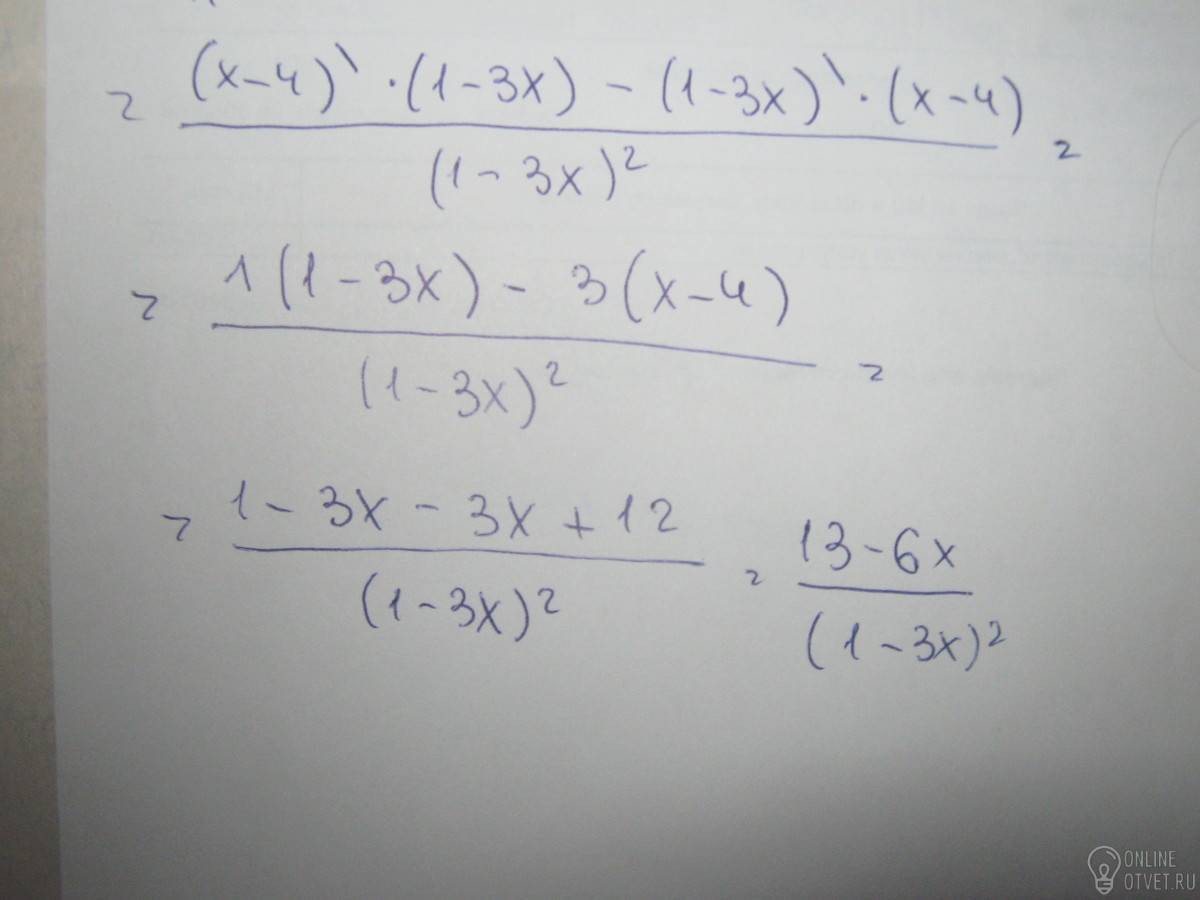 = (x-4)` · (1-3x) - (1-3x)` · (x-4) =
(1-3x)²
= 1(1-3x) - 3(x-4) =
(1-3x)²
= 1-3x-3x+12 = 13-6x
(1-3x)² (1-3x)²
ONLINE
OTVET.RU